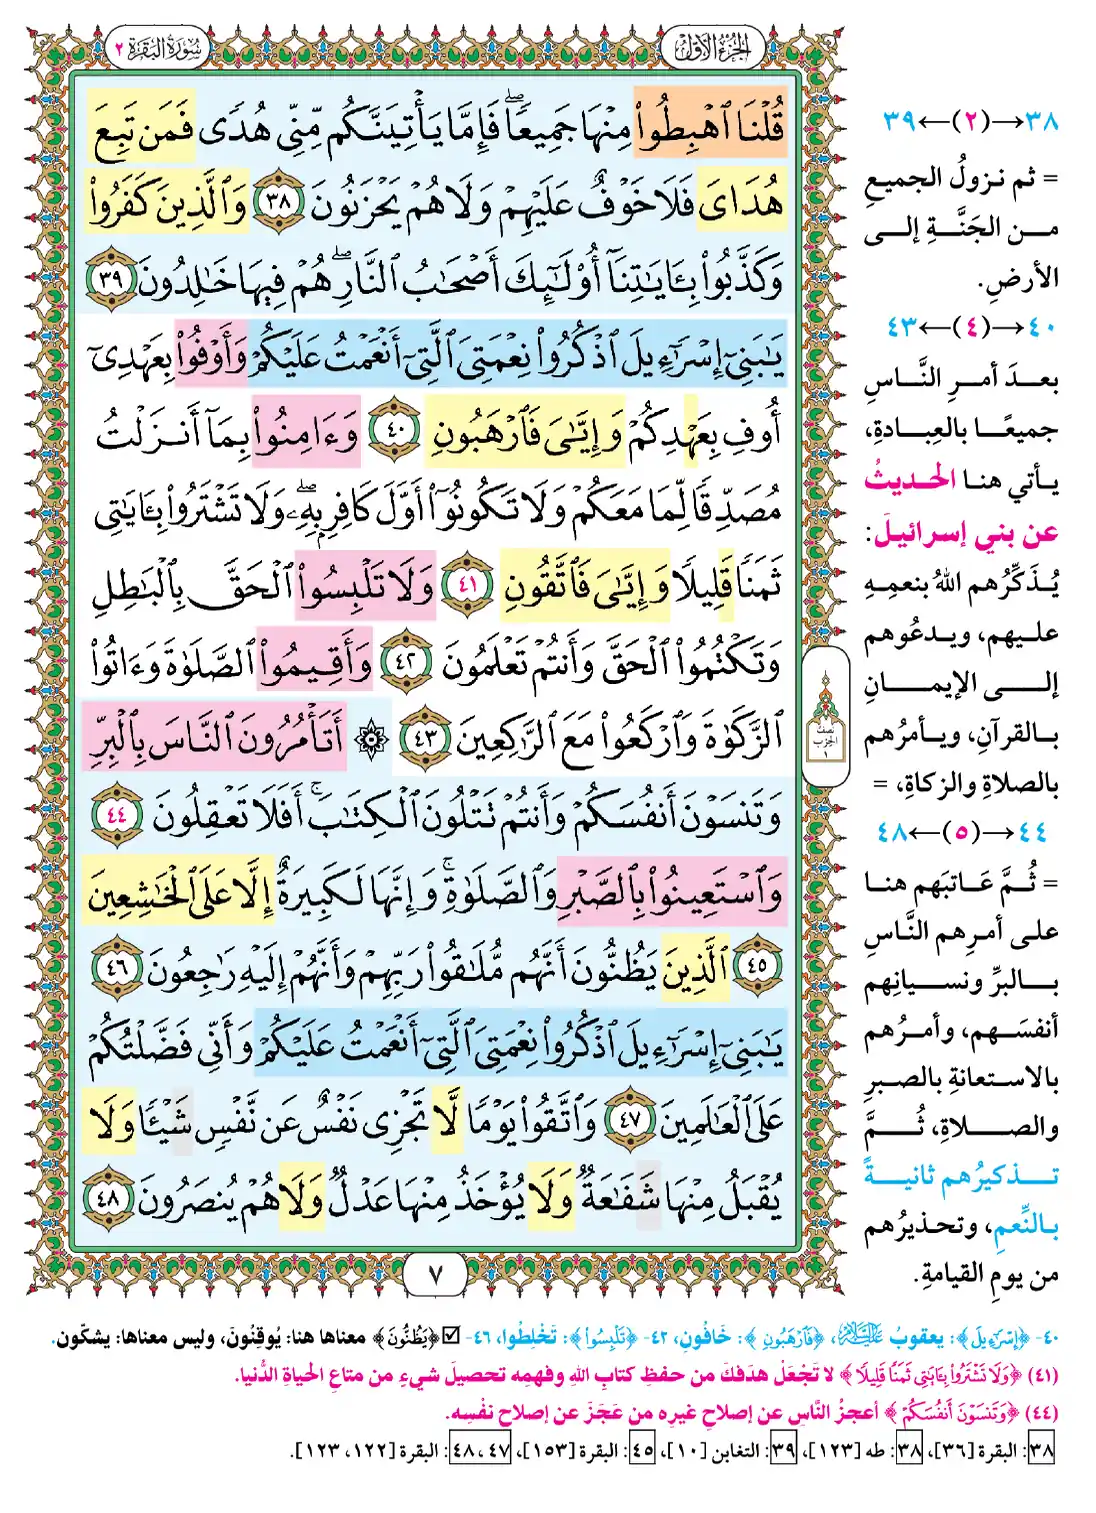 الجزء الأول
سورة البقرة ٢
قُلْنَا ٱهْبِطُوا۟ مِنْهَا جَمِيعًا ۖ فَإِمَّا يَأْتِيَنَّكُم مِّنِّى هُدًى فَمَن تَبِعَ
هُدَاىَ فَلَا خَوْفٌ عَلَيْهِمْ وَلَا هُمْ يَحْزَنُونَ ٣٨ وَٱلَّذِينَ كَفَرُوا۟
وَكَذَّبُوا۟ بِـَٔايَـٰتِنَآ أُو۟لَـٰٓئِكَ أَصْحَـٰبُ ٱلنَّارِ ۖ هُمْ فِيهَا خَـٰلِدُونَ ٣٩
يَـٰبَنِىٓ إِسْرَٰٓءِيلَ ٱذْكُرُوا۟ نِعْمَتِىَ ٱلَّتِىٓ أَنْعَمْتُ عَلَيْكُمْ وَأَوْفُوا۟ بِعَهْدِىٓ
أُوفِ بِعَهْدِكُمْ وَإِيَّـٰىَ فَٱرْهَبُونِ ٤٠ وَءَامِنُوا۟ بِمَآ أَنزَلْتُ
مُصَدِّقًا لِّمَا مَعَكُمْ وَلَا تَكُونُوٓا۟ أَوَّلَ كَافِرٍۭ بِهِۦ ۖ وَلَا تَشْتَرُوا۟ بِـَٔايَـٰتِى
ثَمَنًا قَلِيلًا وَإِيَّـٰىَ فَٱتَّقُونِ ٤١ وَلَا تَلْبِسُوا۟ ٱلْحَقَّ بِٱلْبَـٰطِلِ
وَتَكْتُمُوا۟ ٱلْحَقَّ وَأَنتُمْ تَعْلَمُونَ ٤٢ وَأَقِيمُوا۟ ٱلصَّلَوٰةَ وَءَاتُوا۟
ٱلزَّكَوٰةَ وَٱرْكَعُوا۟ مَعَ ٱلرَّٰكِعِينَ ٤٣ ۞ أَتَأْمُرُونَ ٱلنَّاسَ بِٱلْبِرِّ
وَتَنسَوْنَ أَنفُسَكُمْ وَأَنتُمْ تَتْلُونَ ٱلْكِتَـٰبَ ۚ أَفَلَا تَعْقِلُونَ ٤٤
وَٱسْتَعِينُوا۟ بِٱلصَّبْرِ وَٱلصَّلَوٰةِ ۚ وَإِنَّهَا لَكَبِيرَةٌ إِلَّا عَلَى ٱلْخَـٰشِعِينَ
٤٥ ٱلَّذِينَ يَظُنُّونَ أَنَّهُم مُّلَـٰقُوا۟ رَبِّهِمْ وَأَنَّهُمْ إِلَيْهِ رَٰجِعُونَ ٤٦
يَـٰبَنِىٓ إِسْرَٰٓءِيلَ ٱذْكُرُوا۟ نِعْمَتِىَ ٱلَّتِىٓ أَنْعَمْتُ عَلَيْكُمْ وَأَنِّى فَضَّلْتُكُمْ
عَلَى ٱلْعَـٰلَمِينَ ٤٧ وَٱتَّقُوا۟ يَوْمًا لَّا تَجْزِى نَفْسٌ عَن نَّفْسٍ شَيْـًٔا وَلَا
يُقْبَلُ مِنْهَا شَفَـٰعَةٌ وَلَا يُؤْخَذُ مِنْهَا عَدْلٌ وَلَا هُمْ يُنصَرُونَ ٤٨
٧
نصف
الحزب
١
٣٨→(٢)←٣٩
= ثم نزولُ الجميعِ
من الجَنَّةِ إلى
الأرضِ.
٤٠→(٤)←٤٣
بعدَ أمرِ النَّاسِ
جميعًا بالعِبادةِ،
يأتي هنا الحديثُ
عن بني إسرائيلَ:
يُذَكِّرُهم اللهُ بنعمِهِ
عليهم، ويدعُوهم
إلى الإيمانِ
بالقرآنِ، ويأمرُهم
بالصلاةِ والزكاةِ، =
٤٤→(٥)←٤٨
= ثُمَّ عَاتبَهم هنا
على أمرِهم النَّاسِ
بالبرِّ ونسيانِهم
أنفسَهم، وأمرُهم
بالاستعانةِ بالصبرِ
والصلاةِ، ثُمَّ
تذكيرُهم ثانيةً
بالنِّعمِ، وتحذيرُهم
من يومِ القيامةِ.
٤٠- ﴿إِسْرَٰٓءِيلَ﴾: يعقوبُ عليه السلام، ﴿فَٱرْهَبُونِ﴾: خَافُونِ، ٤٢- ﴿تَلْبِسُوا۟﴾: تَخْلِطُوا، ٤٦- ☑ ﴿يَظُنُّونَ﴾ معناها هنا: يُوقِنُونَ، وليس معناها: يشكّون.
(٤١) ﴿وَلَا تَشْتَرُوا۟ بِـَٔايَـٰتِى ثَمَنًا قَلِيلًا﴾ لا تَجْعَلْ هدَفَكَ من حفظِ كتابِ اللهِ وفهمِه تحصيلَ شيءٍ من متاعِ الحياةِ الدُّنيا.
(٤٤) ﴿وَتَنسَوْنَ أَنفُسَكُمْ﴾ أعجزُ النَّاسِ عن إصلاحِ غيرِه من عَجَزَ عن إصلاحِ نفْسِه.
٣٨: البقرة [٣٦]، ٣٨: طه [١٢٣]، ٣٩: التغابن [١٠]، ٤٥: البقرة [١٥٣]، ٤٧، ٤٨: البقرة [١٢٢، ١٢٣].